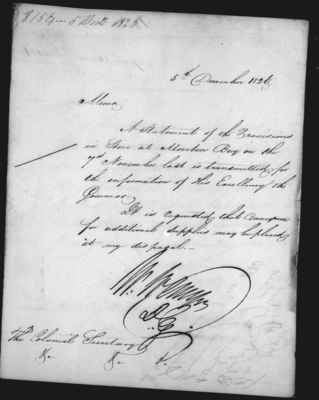 5th December 1826
Memo
A Statement of the Provisions
in Store at Moreton Bay on the
7th November last is transmitted for
the information of His Excellency the
Governor.
It is requested that Conveyance
for additional supplies may be placed
at my disposal.
The Colonial Secretary
&c &c